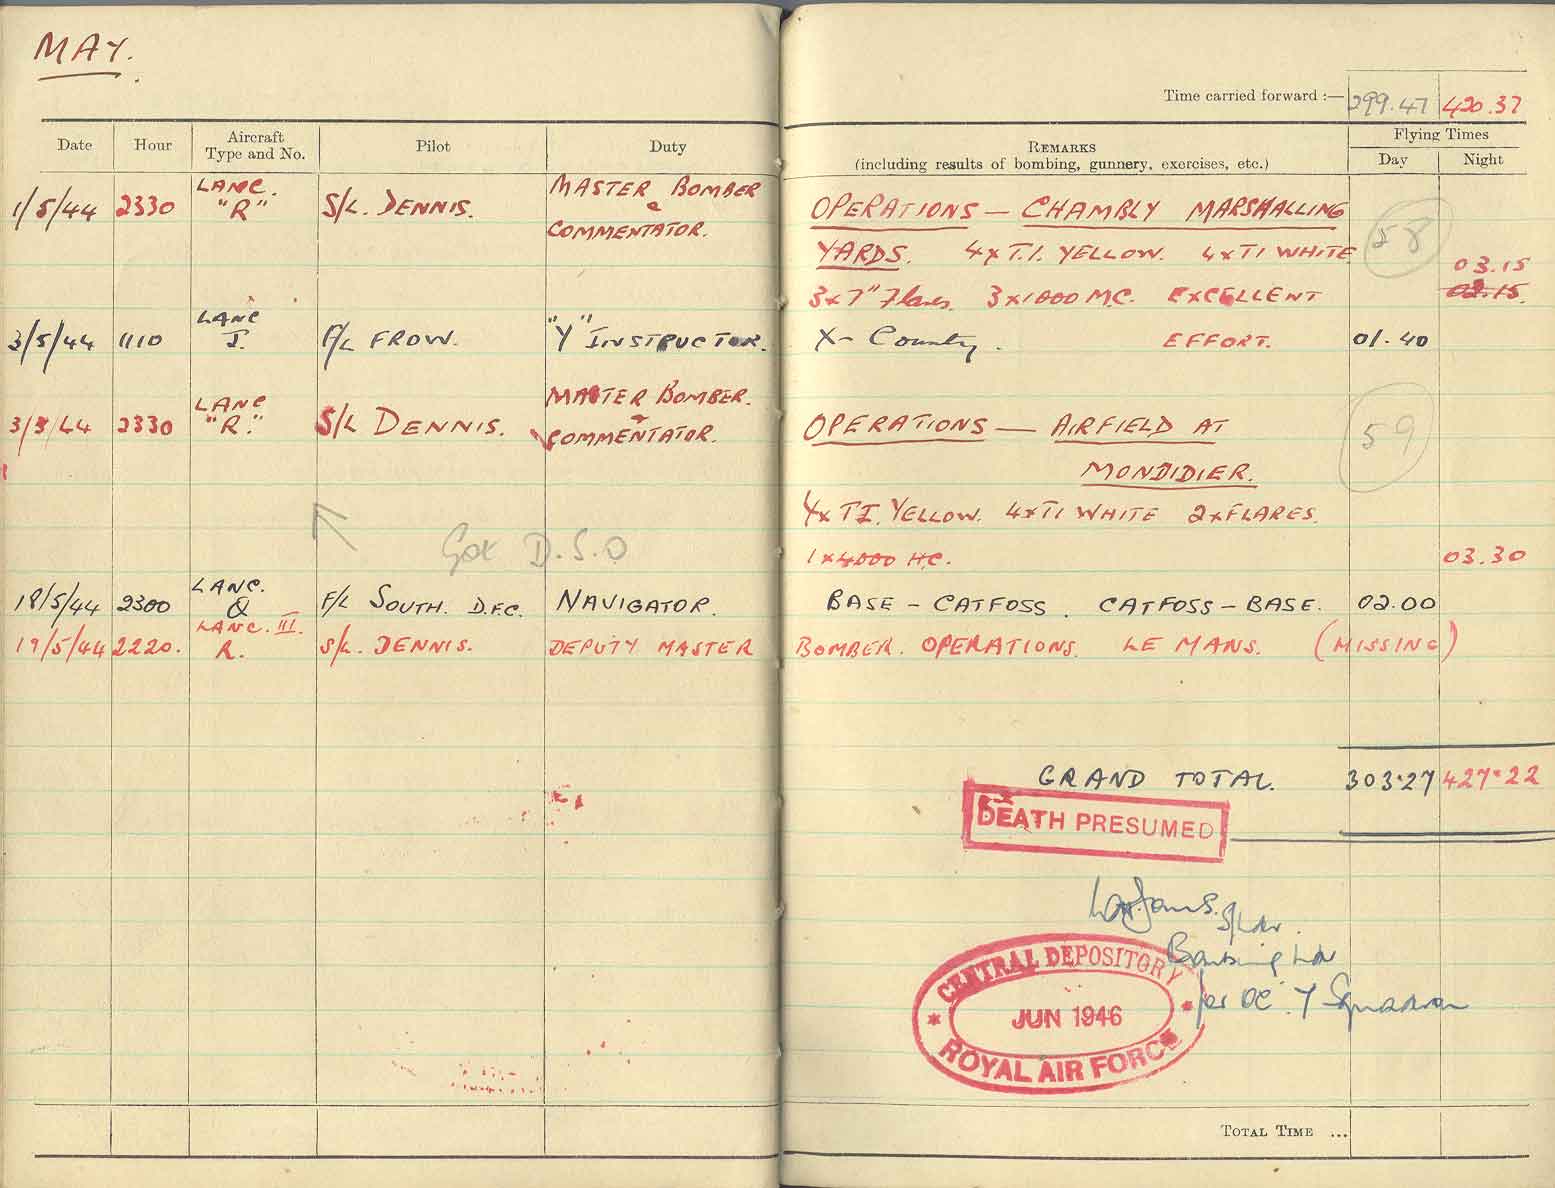 MAY.
Time carried forward :— 299.47 420.37
Date Hour Aircraft Type and No. Pilot Duty REMARKS (including results of bombing, gunnery, exercises, etc.) Flying Times Day Night
1/5/44 2330 LANC. "R" S/L. DENNIS. MASTER BOMBER & COMMENTATOR. OPERATIONS — CHAMBLY MARSHALLING
YARDS. 4xT.I. YELLOW. 4xTI WHITE 58 03.15
3x7" Flares 3x1000 M.C. EXCELLENT 02.15
3/5/44 1110 LANC J. F/L FROW. "Y" INSTRUCTOR. X-County. EFFORT. 01.40
3/5/44 2330 LANC "R." S/L DENNIS. MASTER BOMBER. & COMMENTATOR. OPERATIONS — AIRFIELD AT 59
MONDIDIER.
4x TI. YELLOW. 4xTI WHITE 2xFLARES.
Got D.S.O 1x4000 H.C. 03.30
18/5/44 2300 LANC. Q F/L SOUTH. D.F.C. NAVIGATOR. BASE - CATFOSS. CATFOSS - BASE. 02.00
19/5/44 2220. LANC. III. R. S/L. DENNIS. DEPUTY MASTER BOMBER. OPERATIONS. LE MANS. (MISSING)
GRAND TOTAL. 303.27 427.22
DEATH PRESUMED
S/Ldr.
for OC. 7 Squadron
CENTRAL DEPOSITORY
JUN 1946
ROYAL AIR FORCE
TOTAL TIME ...